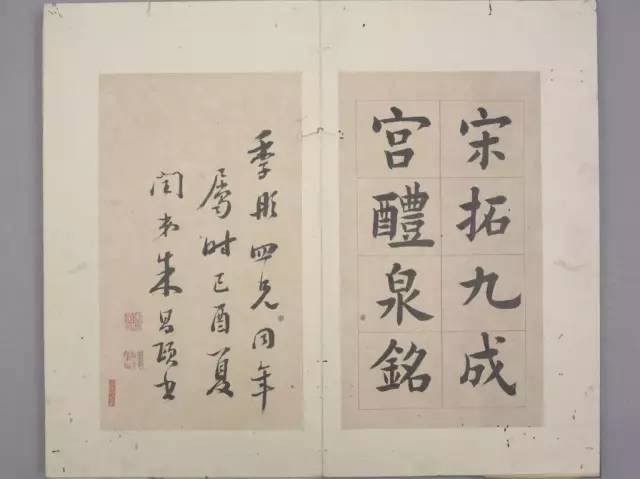 宋拓九成
宮醴泉銘
季彤四兄同年
屬時己酉夏
閏 朱昌頤書